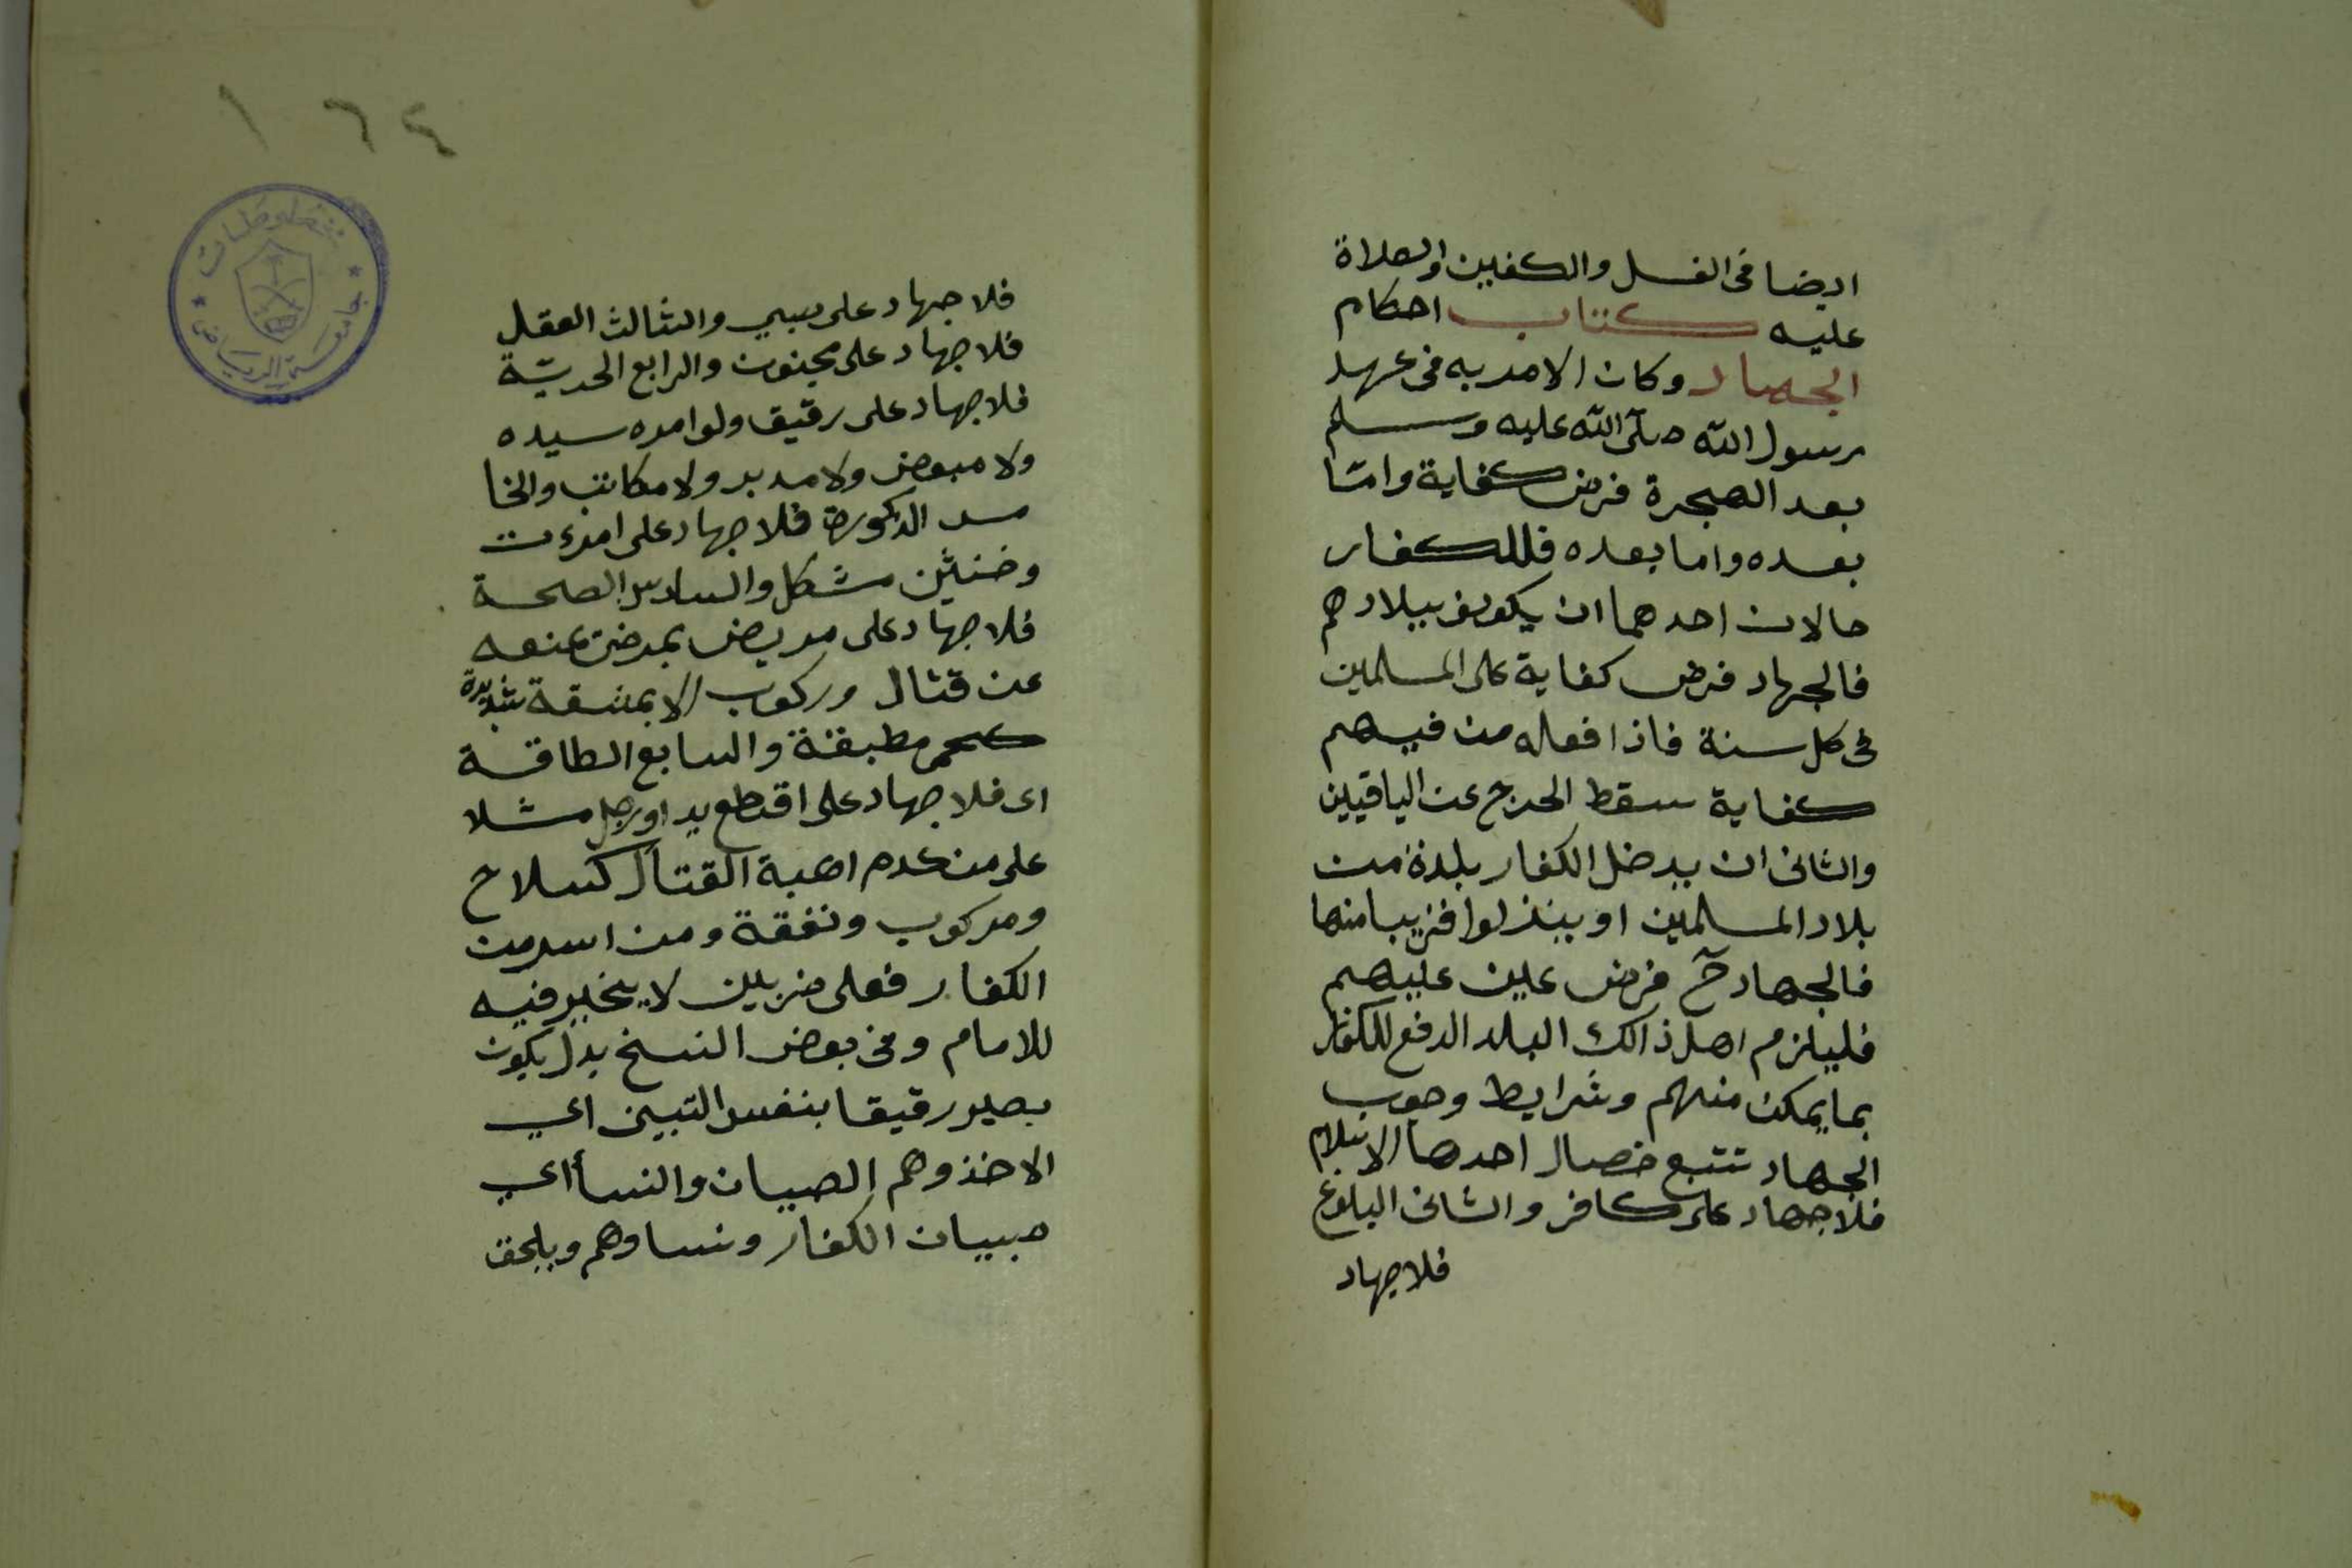 ايضا فى الغسل والكفين والصلاة
عليه كتاب احكام
الجهاد وكان الامر به فى عهد
رسول الله صلى الله عليه وسلم
بعد الهجرة فرض كفاية وامّا
بعده واما بعده فللكفار
حالان احدهما ان يكون ببلادهم
فالجهاد فرض كفاية على المسلمين
فى كل سنة فاذا فعله من فيهم
كفاية سقط الحرج عن الياقيين
والثانى ان يدخل الكفار بلدة من
بلاد المسلمين او ينزلوا قريبا منها
فالجهاد حّ فرض عين عليهم
فليلزم اهل ذالك البلد الدفع للكفار
بما يمكن منهم وشرايط وجوب
الجهاد تتبع خصال احدها الاسلام
فلا جهاد على كافر والثانى البلوغ
فلا جهاد
١٦٤
مخطوطات
جامعة الرياض
فلا جهاد على صبي والثالث العقل
فلا جهاد على مجنون والرابع الحريّة
فلا جهاد على رقيق ولو امره سيده
ولا مبعض ولا مدبر ولا مكاتب والخا
مس الذكورة فلا جهاد على امرءت
وخنثين مشكل والسادس الصحة
فلا جهاد على مريض بمرض يمنعه
عن قتال وركوب الا بمشقة شديدة
كحمى مطبقة والسابع الطاقة
اى فلا جهاد على اقطع يد او رجل مثلا
على من عدم اهبة القتال كسلاح
ومركوب ونفقة ومن اسر من
الكفار فعلى ضربين لا يخير فيه
للامام وفى بعض النسخ بدل يكون
يصير رقيقا بنفس التبين اي
الاخذ وهم الصبيان والنسأ اي
صبيان الكفار ونساوهم ويلحق